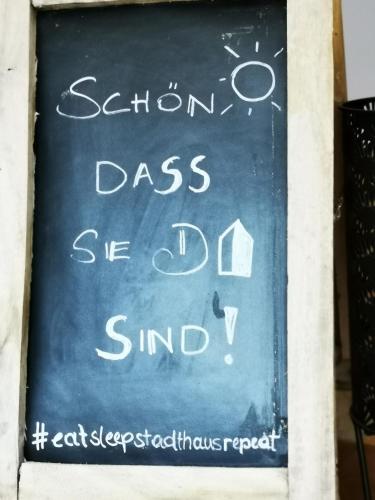 SCHÖN
DASS
SIE DA
SIND!
#eatsleepstadthausrepeat